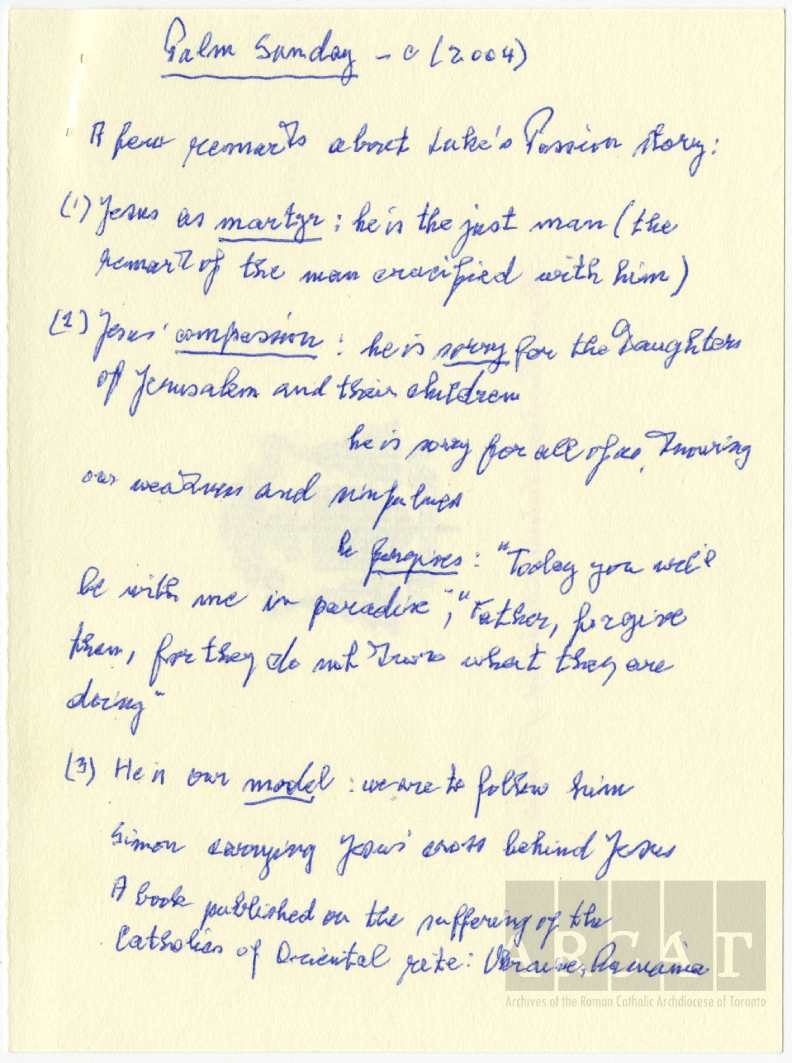 Palm Sunday - C (2004)
A few remarks about Luke's Passion story:
(1) Jesus as martyr: he is the just man (the
remark of the man crucified with him)
(2) Jesus' compassion: he is sorry for the Daughters
of Jerusalem and their children
he is sorry for all of us, knowing
our weakness and sinfulness
he forgives: "Today you will
be with me in paradise"; "Father, forgive
them, for they do not know what they are
doing"
(3) He is our model: we are to follow him
Simon carrying Jesus' cross behind Jesus
A book published on the suffering of the
Catholics of Oriental rite: Ukraine, Romania
ARCAT
Archives of the Roman Catholic Archdiocese of Toronto